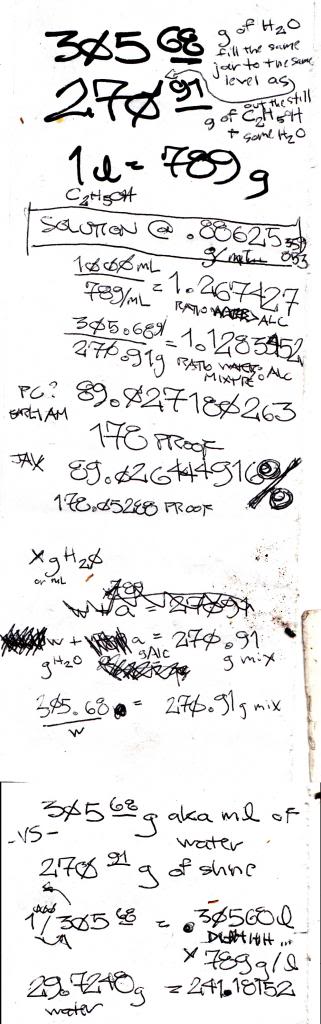 305 68 g of H2O
fill the same
jar to the same
level as
270 91 out the still
g of C2H5OH
+ some H2O
1 l = 789 g
C2H5OH
SOLUTION @ .88625
g/mL
1000mL / 789/mL = 1.267427
RATIO WATER:ALC
305.68g / 270.91g = 1.1283452
RATIO WATER:ALC
MIXTURE
PC? 89.027180263
EARLHAM
178 PROOF
JAX 89.026444916%
178.05288 PROOF
X g H2O
or mL
w + a = 270.91
w + a = 270.91
g H2O g Alc g mix
305.68 / w = 270.91 g mix
305 68 g aka ml of
water
-VS-
270 91 g of shine
1000/305 68 = .30568 l
DUHHHH...
x 789 g/l
29.7248g = 241.18152
water